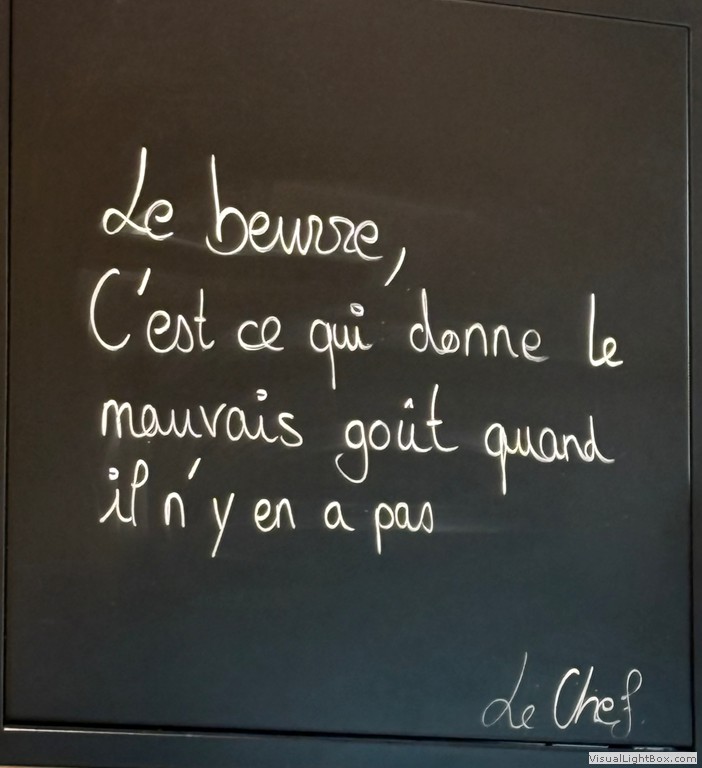 Le beurre,
C'est ce qui donne le
mauvais goût quand
il n'y en a pas
Le Chef.
VisualLightBox.com